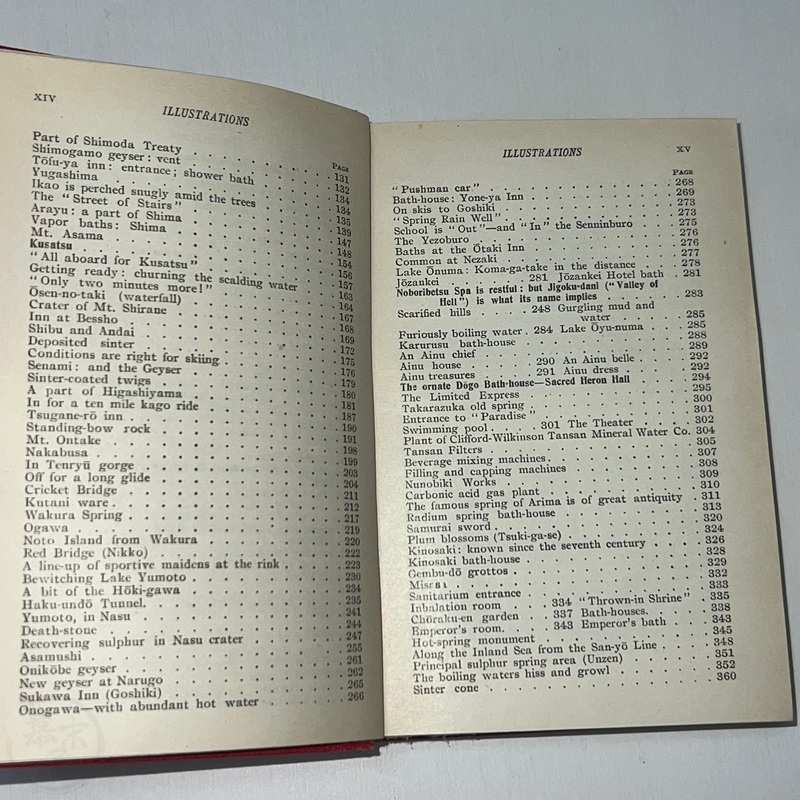 XIV
ILLUSTRATIONS
PAGE
Part of Shimoda Treaty . . . . . . . . . 131
Shimogamo geyser: vent . . . . . . . . . 132
Tōfu-ya inn: entrance; shower bath . . . . . 134
Yugashima . . . . . . . . . . . . 134
Ikao is perched snugly amid the trees . . . . . 135
The "Street of Stairs" . . . . . . . . . 139
Arayu: a part of Shima . . . . . . . . . 147
Vapor baths: Shima . . . . . . . . . . 148
Mt. Asama . . . . . . . . . . . . 154
Kusatsu . . . . . . . . . . . . . 156
"All aboard for Kusatsu" . . . . . . . . 157
Getting ready: churning the scalding water . . . 163
"Only two minutes more!" . . . . . . . . 164
Ōsen-no-taki (waterfall) . . . . . . . . . 167
Crater of Mt. Shirane . . . . . . . . . 168
Inn at Bessho . . . . . . . . . . . 169
Shibu and Andai . . . . . . . . . . 172
Deposited sinter . . . . . . . . . . 175
Conditions are right for skiing . . . . . . . 176
Senami: and the Geyser . . . . . . . . . 179
Sinter-coated twigs . . . . . . . . . . 180
A part of Higashiyama . . . . . . . . . 181
In for a ten mile kago ride . . . . . . . . 187
Tsugane-rō inn . . . . . . . . . . . 190
Standing-bow rock . . . . . . . . . . 191
Mt. Ontake . . . . . . . . . . . . 198
Nakabusa . . . . . . . . . . . . 199
In Tenryū gorge . . . . . . . . . . 203
Off for a long glide . . . . . . . . . 204
Cricket Bridge . . . . . . . . . . . 211
Kutani ware . . . . . . . . . . . . 212
Wakura Spring . . . . . . . . . . . 217
Ogawa . . . . . . . . . . . . . 219
Noto Island from Wakura . . . . . . . . 220
Red Bridge (Nikko) . . . . . . . . . . 222
A line-up of sportive maidens at the rink . . . . 223
Bewitching Lake Yumoto . . . . . . . . 230
A bit of the Hōki-gawa . . . . . . . . . 234
Haku-undō Tunnel. . . . . . . . . . . 235
Yumoto, in Nasu . . . . . . . . . . 241
Death-stone . . . . . . . . . . . . 244
Recovering sulphur in Nasu crater . . . . . . 247
Asamushi . . . . . . . . . . . . 255
Onikōbe geyser . . . . . . . . . . . 261
New geyser at Narugo . . . . . . . . . 262
Sukawa Inn (Goshiki) . . . . . . . . . 265
Onogawa—with abundant hot water . . . . . 266
ILLUSTRATIONS
XV
PAGE
"Pushman car" . . . . . . . . . . . 268
Bath-house: Yone-ya Inn . . . . . . . . 269
On skis to Goshiki . . . . . . . . . . 273
"Spring Rain Well" . . . . . . . . . . 273
School is "Out"—and "In" the Senninburo . . . 275
The Yezoburo . . . . . . . . . . . 276
Baths at the Ōtaki Inn . . . . . . . . . 276
Common at Nezaki . . . . . . . . . . 277
Lake Ōnuma: Koma-ga-take in the distance . . . 278
Jōzankei . . . . . . 281 Jōzankei Hotel bath . 281
Noboribetsu Spa is restful: but Jigoku-dani ("Valley of
Hell") is what its name implies . . . . . . 283
Scarified hills . . . . 248 Gurgling mud and
water . . . . . 285
Furiously boiling water . 284 Lake Ōyu-numa . . 285
Karurusu bath-house . . . . . . . . . 288
An Ainu chief . . . . . . . . . . . 289
Ainu house . . . . . 290 An Ainu belle . . . 292
Ainu treasures . . . . 291 Ainu dress . . . . 292
The ornate Dōgo Bath-house—Sacred Heron Hall . . 294
The Limited Express . . . . . . . . . 295
Takarazuka old spring . . . . . . . . . 300
Entrance to "Paradise" . . . . . . . . . 301
Swimming pool . . . . 301 The Theater . . . . 302
Plant of Clifford-Wilkinson Tansan Mineral Water Co. 304
Tansan Filters . . . . . . . . . . . 305
Beverage mixing machines. . . . . . . . 307
Filling and capping machines . . . . . . . 308
Nunobiki Works . . . . . . . . . . 309
Carbonic acid gas plant . . . . . . . . . 310
The famous spring of Arima is of great antiquity . . 311
Radium spring bath-house . . . . . . . . 313
Samurai sword . . . . . . . . . . . 320
Plum blossoms (Tsuki-ga-se) . . . . . . . 324
Kinosaki: known since the seventh century . . . . 326
Kinosaki bath-house . . . . . . . . . 328
Gembu-dō grottos . . . . . . . . . . 329
Misasa . . . . . . . . . . . . . 332
Sanitarium entrance . . . . . . . . . 333
Inhalation room . . . . 334 "Thrown-in Shrine" . 335
Chōraku-en garden . . . 337 Bath-houses. . . . 338
Emperor's room. . . . 343 Emperor's bath . . . 343
Hot-spring monument . . . . . . . . . 345
Along the Inland Sea from the San-yō Line . . . . 348
Principal sulphur spring area (Unzen) . . . . . 351
The boiling waters hiss and growl . . . . . . 352
Sinter cone . . . . . . . . . . . . 360